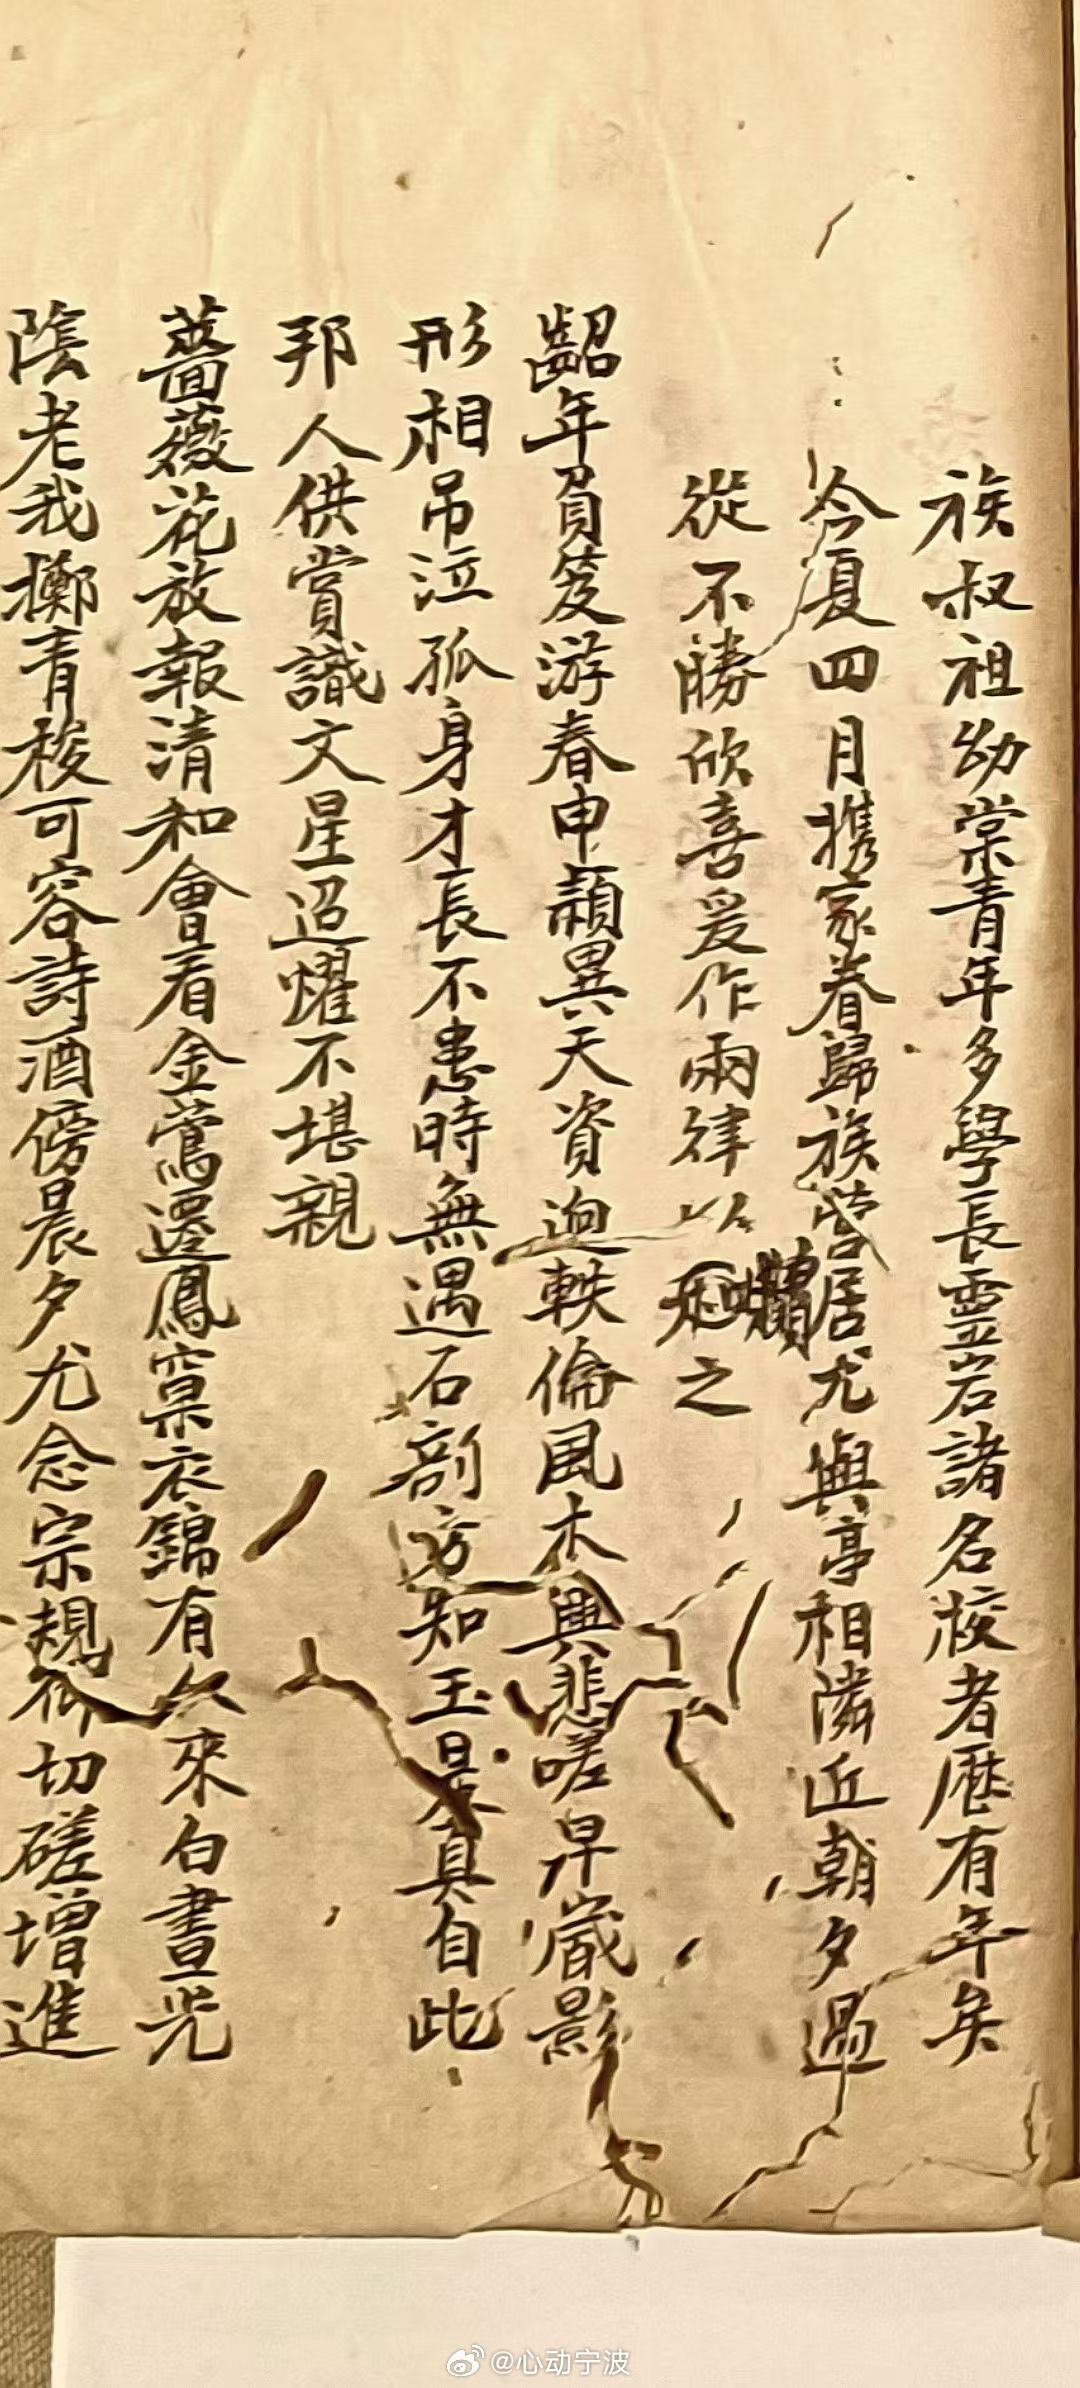 族叔祖幼棠青年多學長靈岩諸名校者歷有年矣
今夏四月携家眷歸族營居尤與亭相隣近朝夕過
從不勝欣喜爰作兩律以之
齠年負笈游春申穎異天資迥軼倫風木興悲嗟早歲影
形相吊泣孤身才長不患時無遇石剖方知玉是真自此
邦人供賞識文星迢耀不堪親
薔薇花放報清和會看金鶯遷鳳窠衣錦有來白晝光
陰老我擲青梭可容詩酒傍晨夕尤念宗規切磋增進
@心动宁波